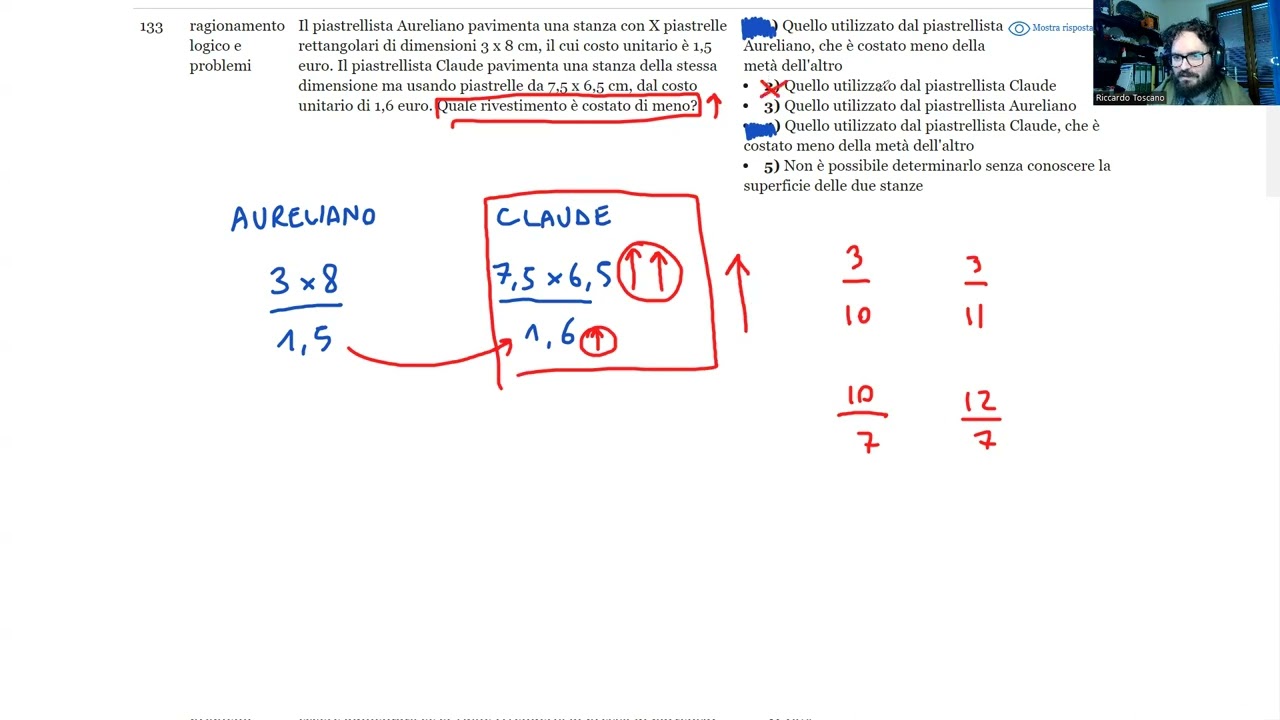 133
ragionamento
logico e
problemi
Il piastrellista Aureliano pavimenta una stanza con X piastrelle
rettangolari di dimensioni 3 x 8 cm, il cui costo unitario è 1,5
euro. Il piastrellista Claude pavimenta una stanza della stessa
dimensione ma usando piastrelle da 7,5 x 6,5 cm, dal costo
unitario di 1,6 euro. Quale rivestimento è costato di meno?
) Quello utilizzato dal piastrellista
Aureliano, che è costato meno della
metà dell'altro
• 2) Quello utilizzato dal piastrellista Claude
• 3) Quello utilizzato dal piastrellista Aureliano
) Quello utilizzato dal piastrellista Claude, che è
costato meno della metà dell'altro
• 5) Non è possibile determinarlo senza conoscere la
superficie delle due stanze
Mostra risposta
Riccardo Toscano
AURELIANO
3 x 8
1,5
CLAUDE
7,5 x 6,5
1,6
3
10
3
11
10
7
12
7